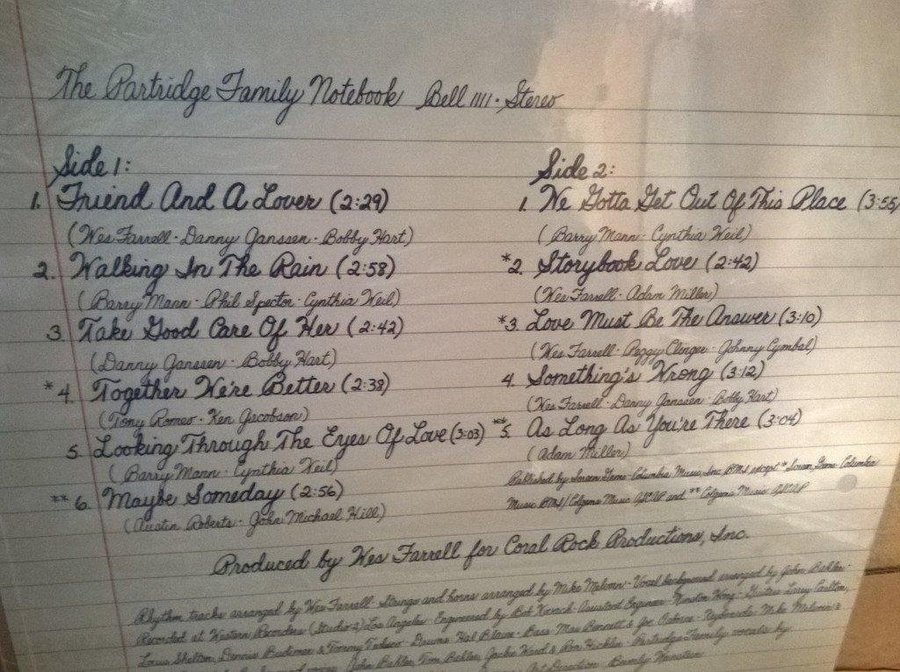 The Partridge Family Notebook Bell 1111 · Stereo
Side 1:
1. Friend And A Lover (2:29)
(Wes Farrell · Danny Janssen · Bobby Hart)
2. Walking In The Rain (2:58)
(Barry Mann · Phil Spector · Cynthia Weil)
3 Take Good Care Of Her (2:42)
(Danny Janssen · Bobby Hart)
* 4. Together We're Better (2:38)
(Tony Romeo · Ken Jacobson)
5. Looking Through The Eyes Of Love (3:03)
(Barry Mann · Cynthia Weil)
** 6. Maybe Someday (2:56)
(Austin Roberts · John Michael Hill)
Side 2:
1. We Gotta Get Out Of This Place (3:55)
(Barry Mann · Cynthia Weil)
*2. Storybook Love (2:42)
(Wes Farrell · Adam Miller)
*3. Love Must Be The Answer (3:10)
(Wes Farrell · Peggy Clinger · Johnny Cymbal)
4. Something's Wrong (3:12)
(Wes Farrell · Danny Janssen · Bobby Hart)
**5. As Long As You're There (3:04)
(Adam Miller)
Published by Screen Gems-Columbia Music, Inc. BMI except * Screen Gems-Columbia
Music BMI/Colgems Music ASCAP and ** Colgems Music ASCAP
Produced by Wes Farrell for Coral Rock Productions, Inc.
Rhythm tracks arranged by Wes Farrell · Strings and horns arranged by Mike Melvoin · Vocal background arranged by John Bahler ·
Recorded at Western Recorders (Studio 2) Los Angeles · Engineered by Bob Kovach · Assistant Engineer · Winston Wong · Guitars Larry Carlton,
Louie Shelton, Dennis Budimir & Tommy Tedesco · Drums Hal Blaine · Bass Max Bennett & Joe Osborn · Keyboards Mike Melvoin &
John Bahler, Tom Bahler, Jackie Ward & Ron Hicklin · Partridge Family vocals by
Art Direction · Beverly Weinstein